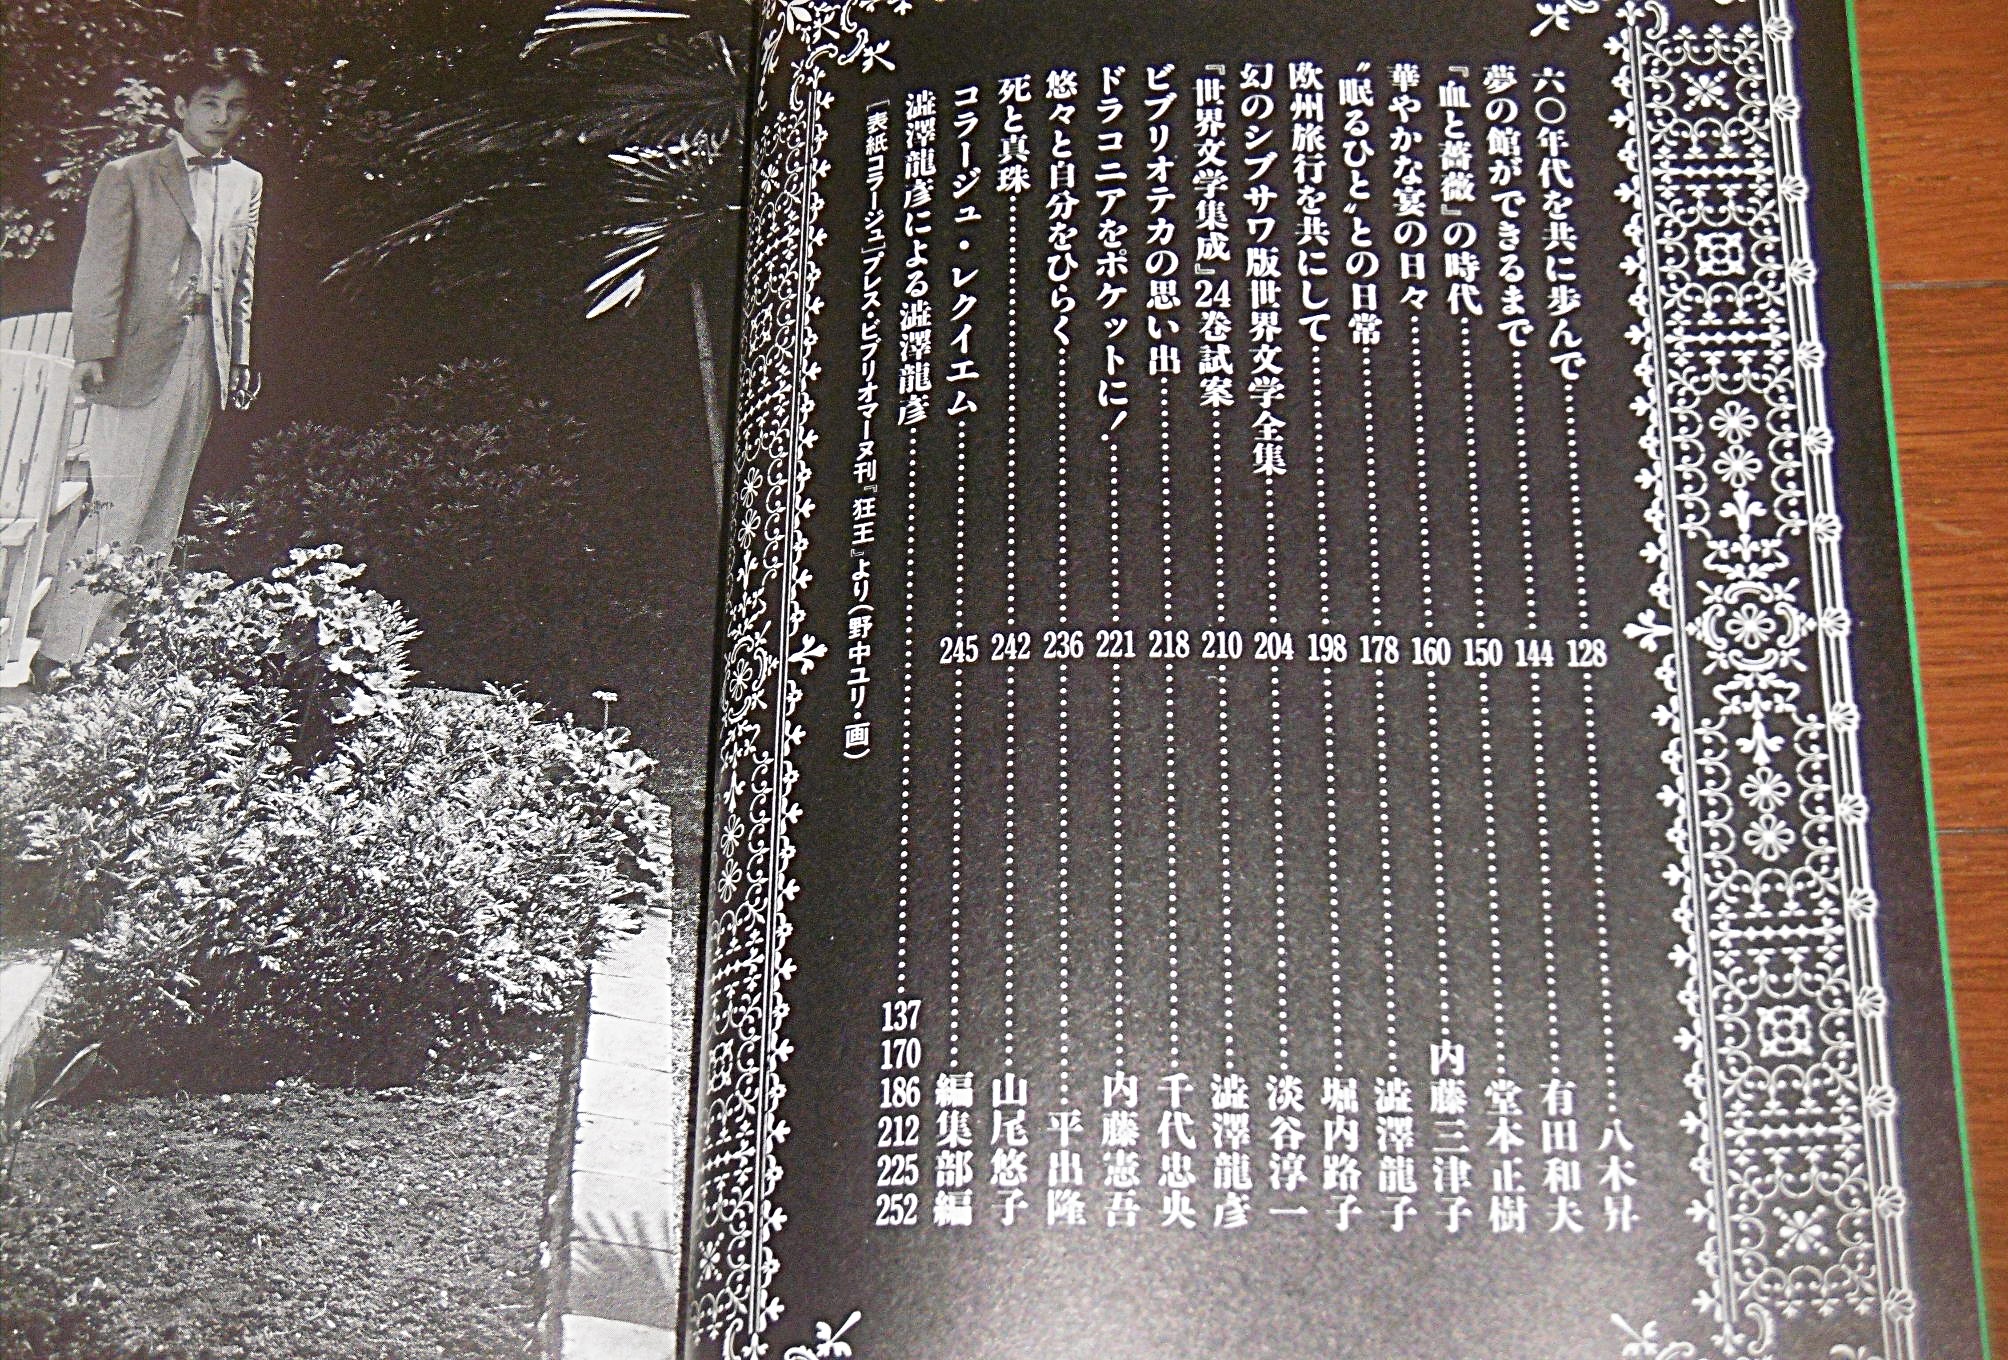 六〇年代を共に歩んで……128……八木昇
夢の館ができるまで……144……有田和夫
『血と薔薇』の時代……150……堂本正樹
華やかな宴の日々……160……内藤三津子
〝眠るひと〟との日常……178……澁澤龍子
欧州旅行を共にして……198……堀内路子
幻のシブサワ版世界文学全集……204……淡谷淳一
『世界文学集成』24巻試案……210……澁澤龍彥
ビブリオテカの思い出……218……千代忠央
ドラコニアをポケットに！……221……内藤憲吾
悠々と自分をひらく……236……平出隆
死と真珠……242……山尾悠子
コラージュ・レクイエム……245……編集部編
澁澤龍彥による澁澤龍彥……137 170 186 212 225 252
［表紙コラージュ］プレス・ビブリオマーヌ刊『狂王』より（野中ユリ 画）